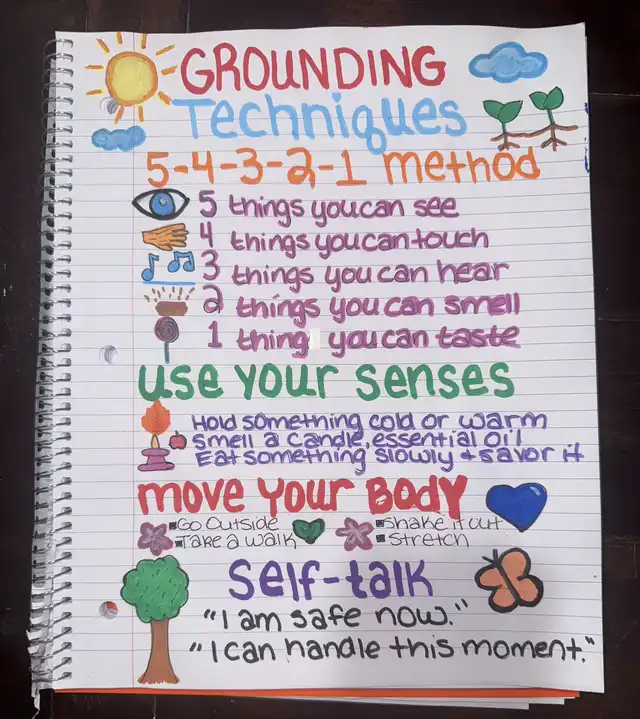 GROUNDING
Techniques
5-4-3-2-1 method
5 things you can see
4 things you can touch
3 things you can hear
2 things you can smell
1 thing you can taste
use your senses
Hold something cold or warm
Smell a candle, essential oil
Eat something slowly + savor it
move Your BODY
▪Go Outside ▪Shake it out
▪Take a walk ▪Stretch
Self-talk
"I am safe now."
"I can handle this moment."